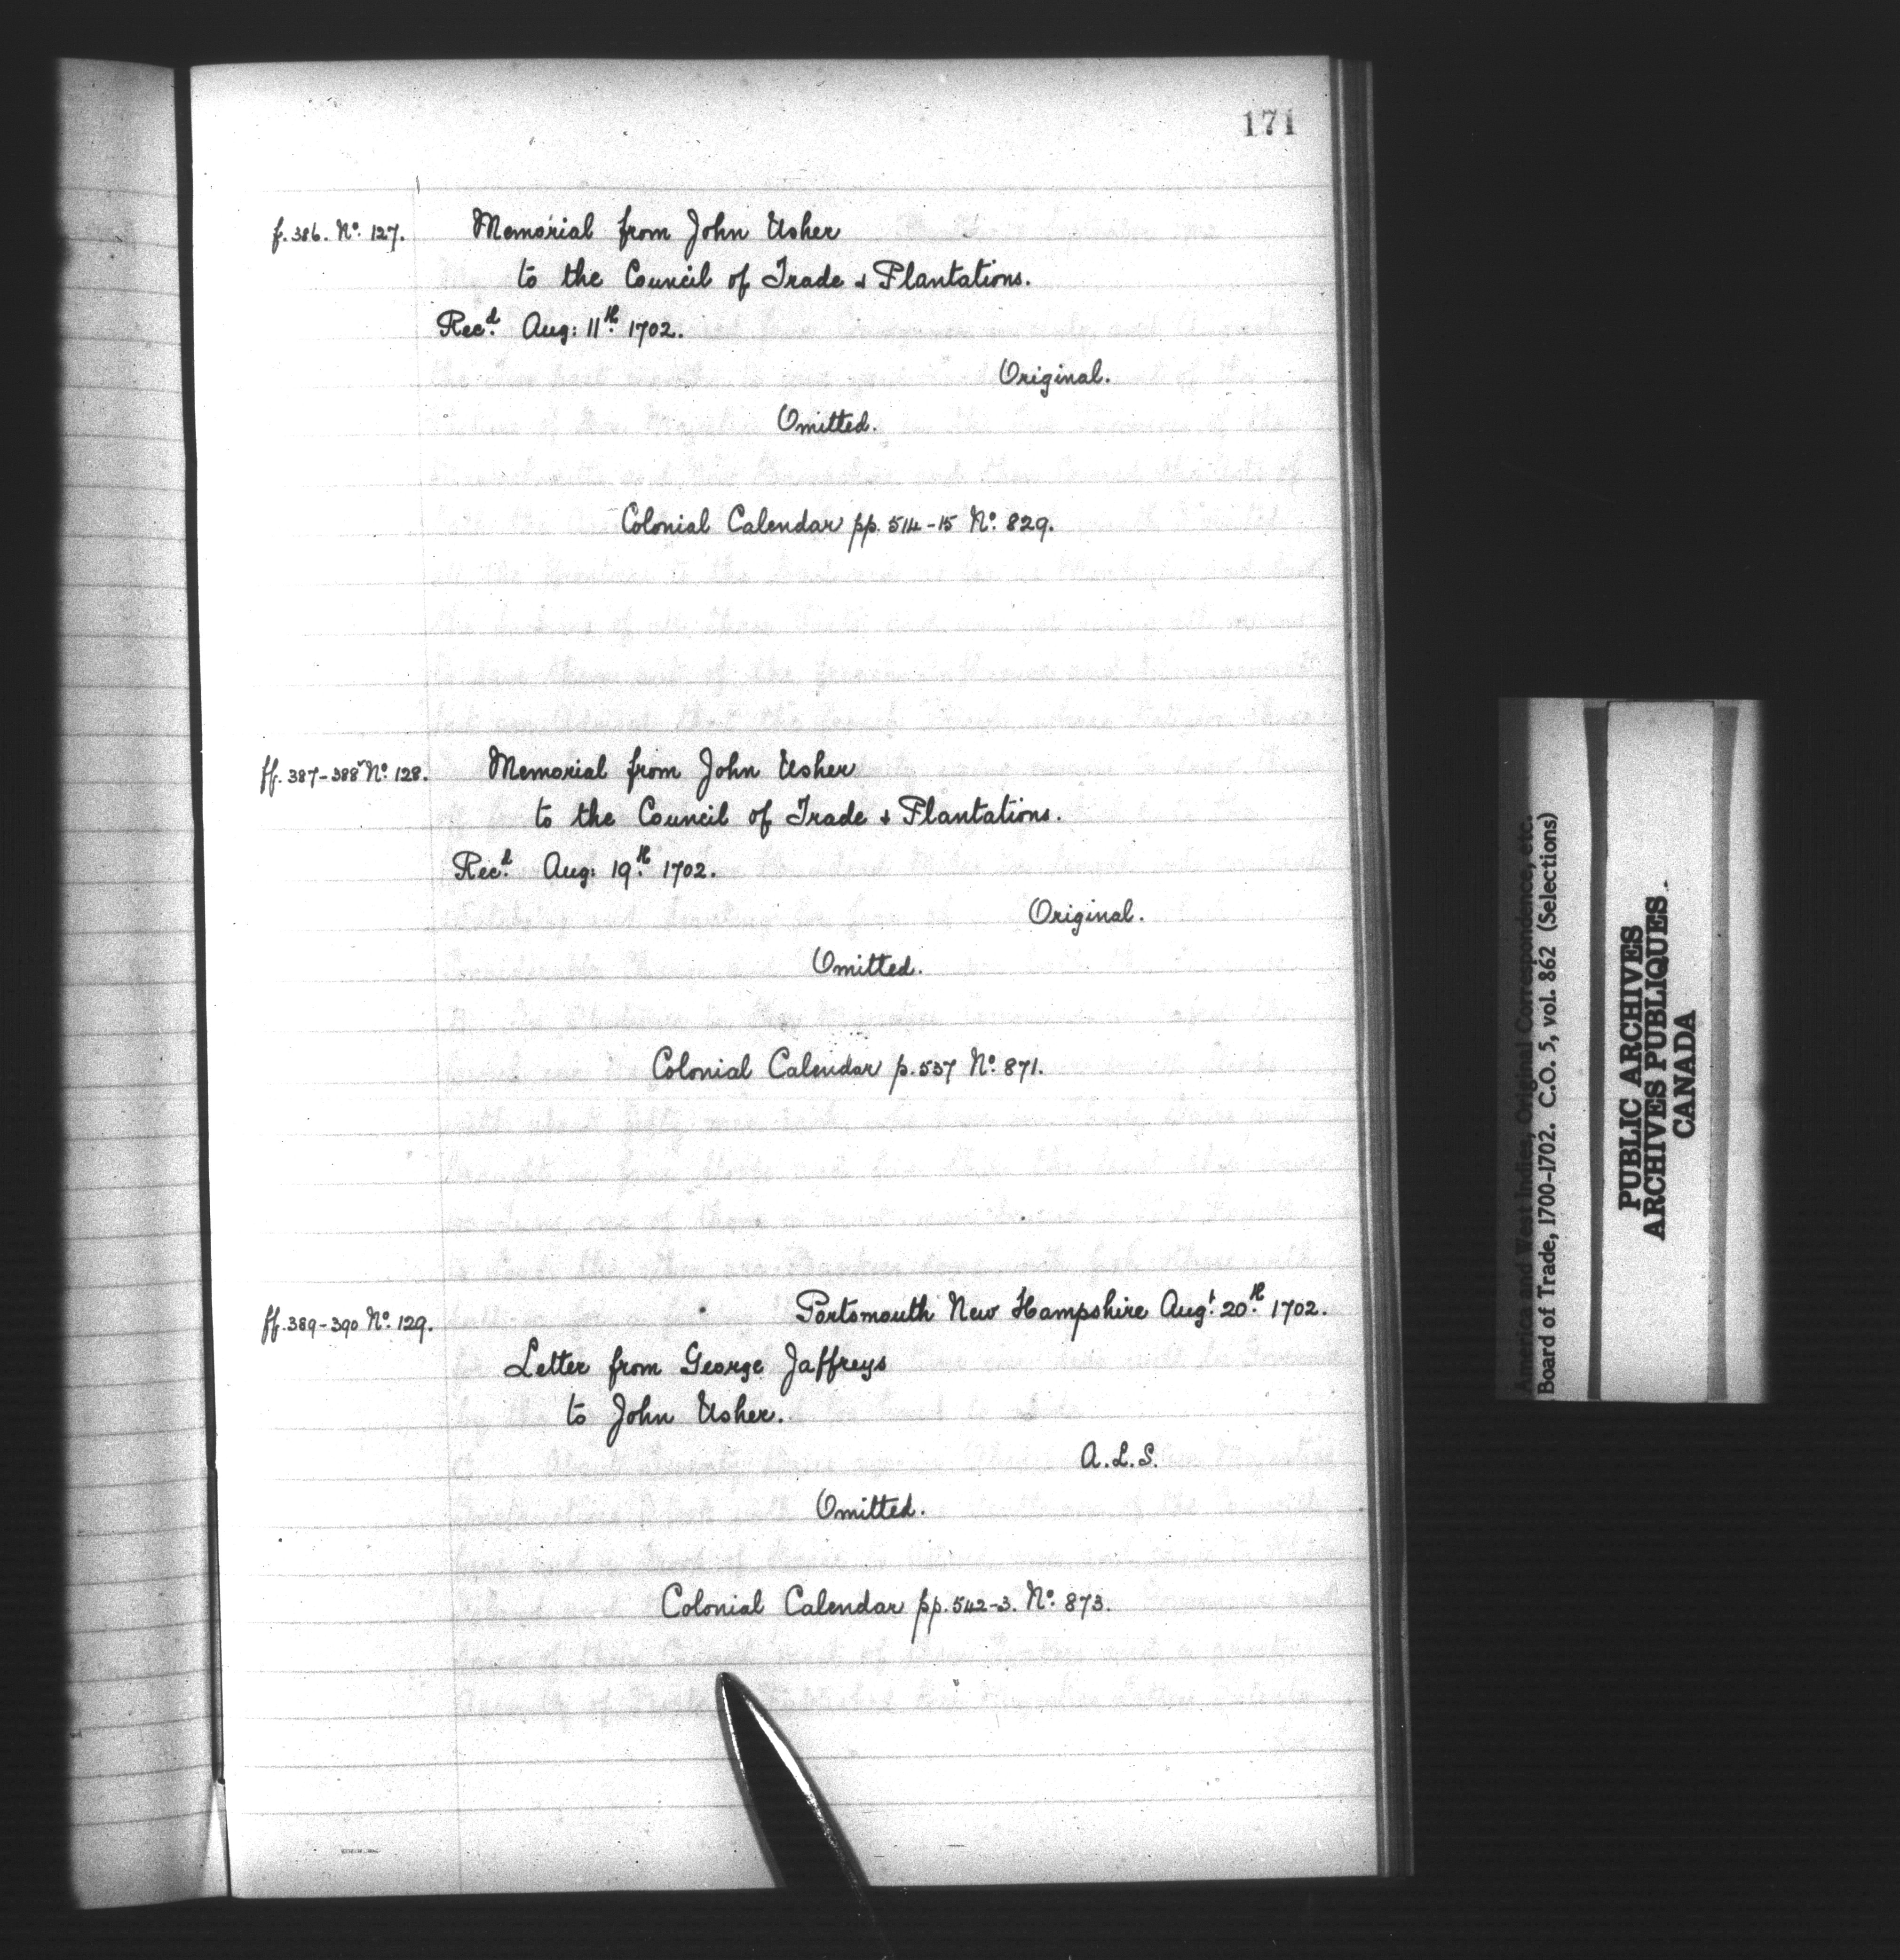 171
f. 386. Nº. 127. Memorial from John Usher
to the Council of Trade & Plantations.
Recd. Aug: 11th. 1702.
Original.
Omitted.
Colonial Calendar pp. 514-15 Nº. 829.
ff. 387-388v Nº. 128. Memorial from John Usher
to the Council of Trade & Plantations.
Recd. Aug: 19th. 1702.
Original.
Omitted.
Colonial Calendar p. 537 Nº. 871.
ff. 389-390 Nº. 129. Portsmouth New Hampshire Augt. 20th. 1702.
Letter from George Jaffreys
to John Usher.
A.L.S.
Omitted.
Colonial Calendar pp. 542-3. Nº. 873.
America and West Indies, Original Correspondence, etc.
Board of Trade, 1700-1702. C.O. 5, vol. 862 (Selections)
PUBLIC ARCHIVES
ARCHIVES PUBLIQUES
CANADA